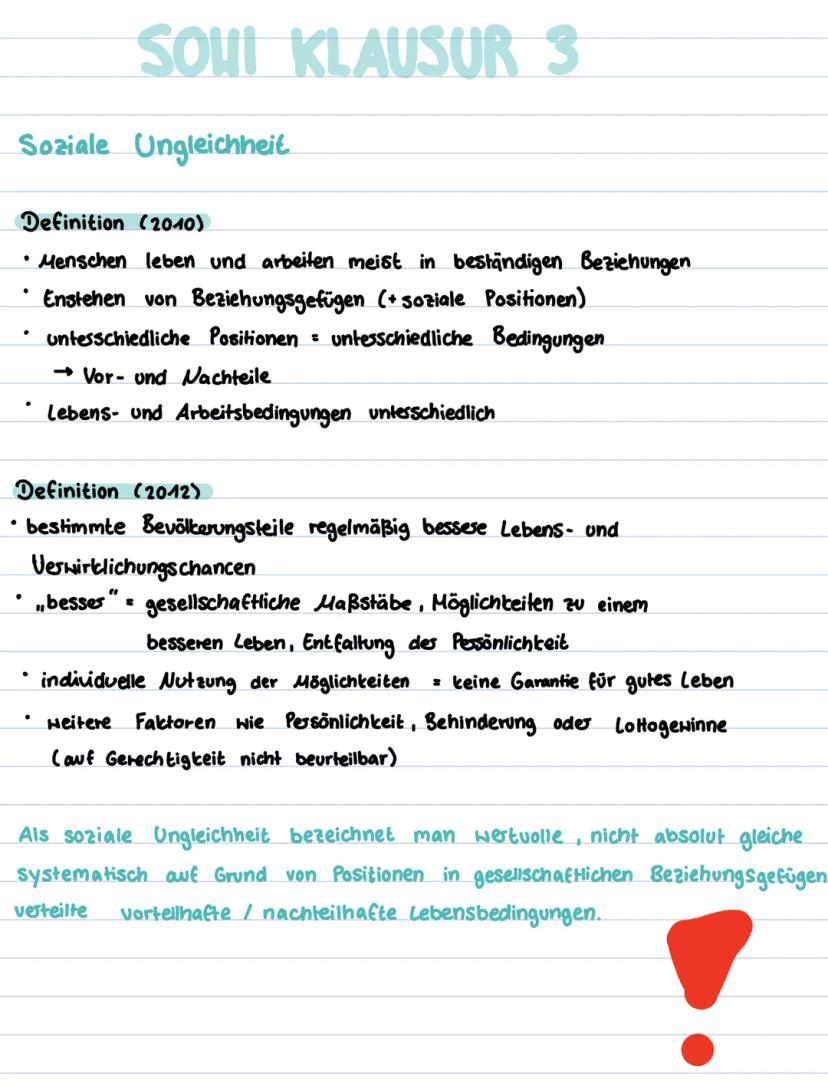 SOWI KLAUSUR 3
Soziale Ungleichheit
Definition (2010)
· Menschen leben und arbeiten meist in beständigen Beziehungen
· Enstehen von Beziehungsgefügen (+ soziale Positionen)
· unterschiedliche Positionen = unterschiedliche Bedingungen
→ Vor- und Nachteile
· Lebens- und Arbeitsbedingungen unterschiedlich
Definition (2012)
· bestimmte Bevölkerungsteile regelmäßig bessere Lebens- und
Verwirklichungschancen
· „besser" = gesellschaftliche Maßstäbe, Möglichkeiten zu einem
besseren Leben, Entfaltung der Persönlichkeit
· individuelle Nutzung der Möglichkeiten = keine Garantie für gutes Leben
· weitere Faktoren wie Persönlichkeit, Behinderung oder Lottogewinne
(auf Gerechtigkeit nicht beurteilbar)
Als soziale Ungleichheit bezeichnet man wertvolle, nicht absolut gleiche
systematisch auf Grund von Positionen in gesellschaftlichen Beziehungsgefügen
verteilte vorteilhafte / nachteilhafte Lebensbedingungen.
!